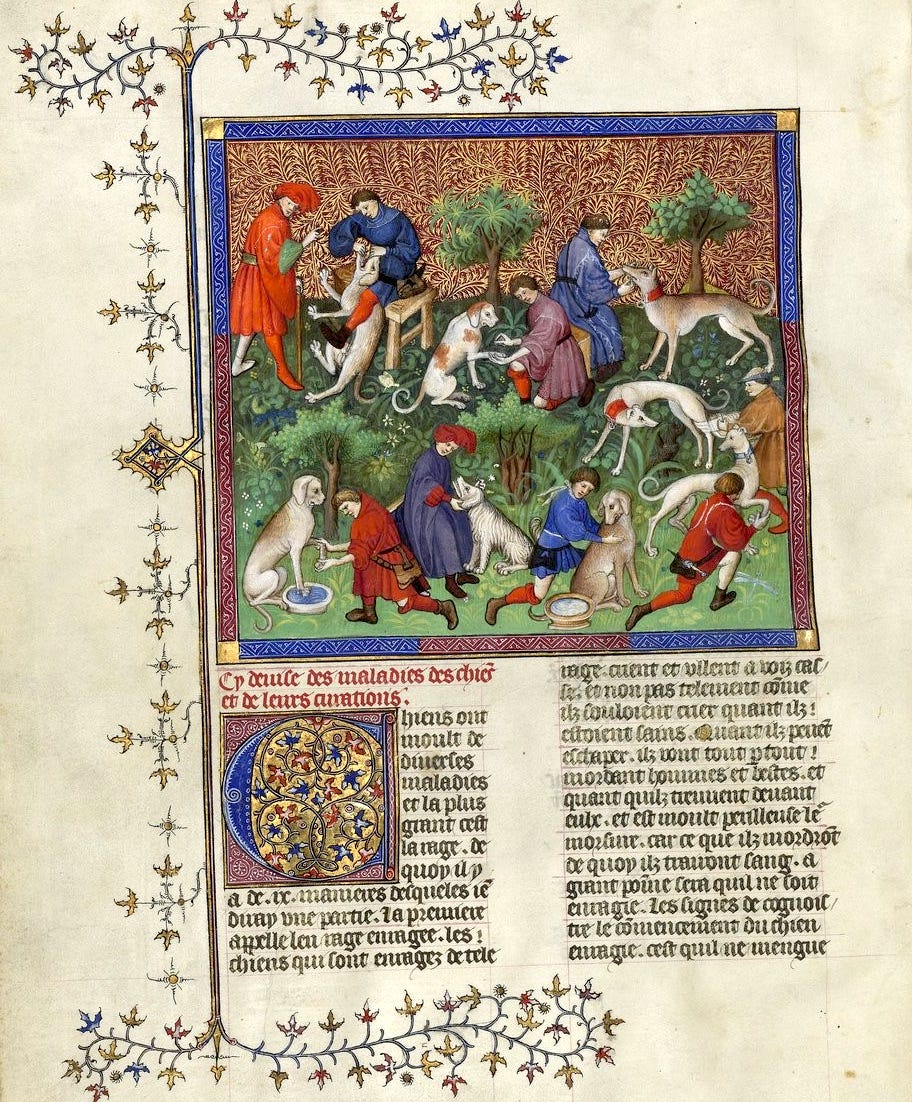 Cy deuise des maladies des chiēs
et de leurs curations.
Chiens ont
moult de
diuerses
maladies
et la plus
grant cest
la rage. de
quoy il y
a de .ix. manieres desqueles ie
diray vne partie. la premiere
appelle len rage enragee. les
chiens qui sont enragez de tele
rage. crient et vllent a voiz cas/
se. et non pas telement cōme
ilz souloient crier quant ilz
estoient sains. Quant ilz peuēt
eschaper. ilz vont tout ꝑtout
mordant hommes et bestes. et
quant quilz treuuent deuant
eulx. et est moult perilleuse leᷓ
morsure. car ce que ilz mordrōt
de quoy ilz trairont sang. a
grant poine sera quil ne soit
enragie. Les signes de cognois/
tre le cōmencement du chien
enragie. cest quil ne mengue